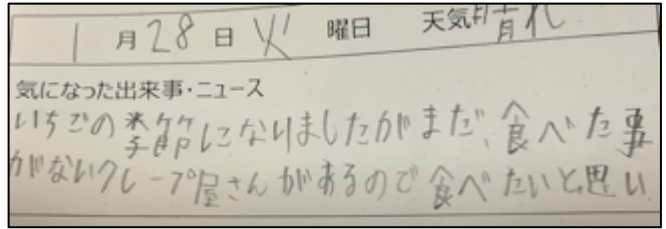 1月28日 火 曜日 天気 晴れ
気になった出来事・ニュース
いちごの季節になりましたがまだ、食べた事
がないクレープ屋さんがあるので食べたいと思い